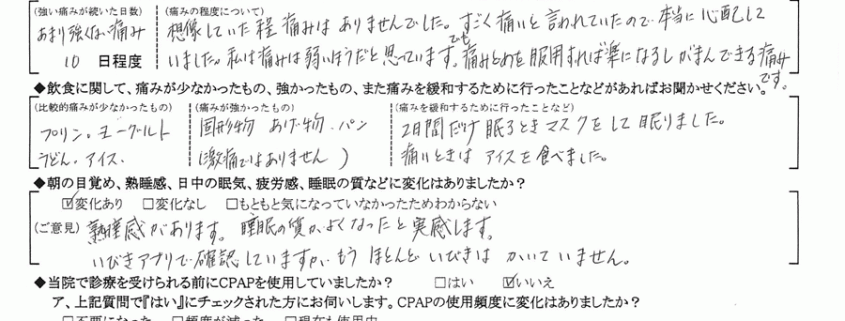 (強い痛みが続いた日数) (痛みの程度について)
あまり強くない痛み 想像していた程 痛みは ありませんでした。すごく痛いと言われていたので 本当に心配して
10 日程度 いました。私は痛みは弱いほうだと思っています。でも 痛みどめを服用すれば楽になるしがまんできる痛みです。
◆飲食に関して、痛みが少なかったもの、強かったもの、また痛みを緩和するために行ったことなどがあればお聞かせください。
(比較的痛みが少なかったもの) (痛みが強かったもの) (痛みを緩和するために行ったことなど)
プリン。ヨーグルト 固形物 あげ物・パン 2日間だけ 眠るときマスクをして眠りました。
うどん・アイス・ (激痛ではありません) 痛いときは アイスを食べました。
◆朝の目覚め、熟睡感、日中の眠気、疲労感、睡眠の質などに変化はありましたか?
☑変化あり □変化なし □もともと気になっていなかったためわからない
(ご意見) 熟睡感があります。睡眠の質がよくなったと実感します。
いびきアプリで確認していますが、もう ほとんどいびきは かいていません。
◆当院で診療を受けられる前にCPAPを使用していましたか? □はい ☑いいえ
ア、上記質問で『はい』にチェックされた方にお伺いします。CPAPの使用頻度に変化はありましたか?
□不要になった □頻度が減った □現在も使用中